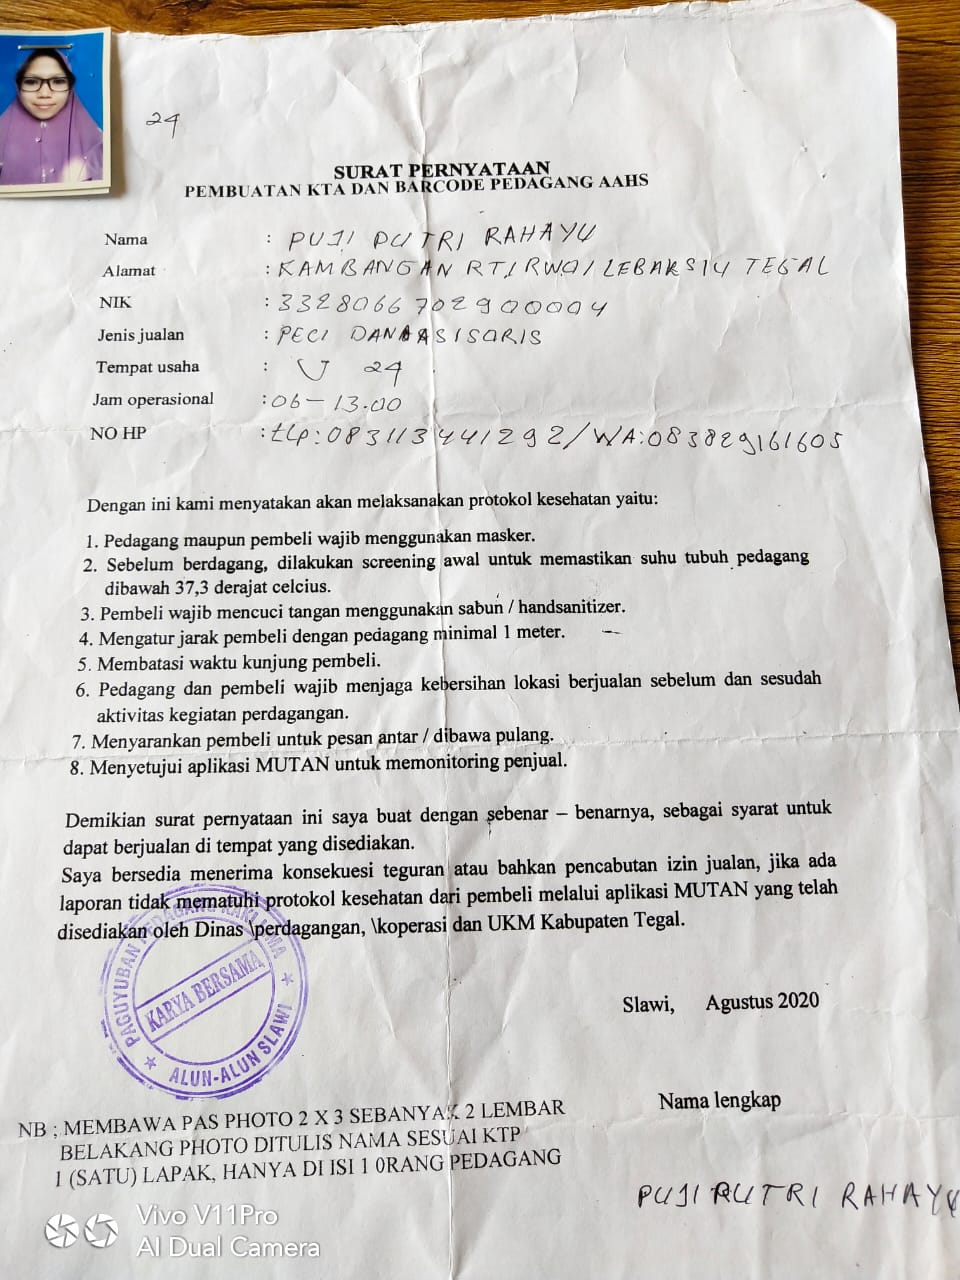 24
SURAT PERNYATAAN
PEMBUATAN KTA DAN BARCODE PEDAGANG AAHS
Nama : PUJI PUTRI RAHAYU
Alamat : KAMBANGAN RT1RW01LEBAKSIU TEGAL
NIK : 3328066702900004
Jenis jualan : PECI DAN AASISORIS
Tempat usaha : U 24
Jam operasional : 06 – 13.00
NO HP : tlp:083113441292/WA:083829161605
Dengan ini kami menyatakan akan melaksanakan protokol kesehatan yaitu:
1. Pedagang maupun pembeli wajib menggunakan masker.
2. Sebelum berdagang, dilakukan screening awal untuk memastikan suhu tubuh pedagang
dibawah 37,3 derajat celcius.
3. Pembeli wajib mencuci tangan menggunakan sabun / handsanitizer.
4. Mengatur jarak pembeli dengan pedagang minimal 1 meter.
5. Membatasi waktu kunjung pembeli.
6. Pedagang dan pembeli wajib menjaga kebersihan lokasi berjualan sebelum dan sesudah
aktivitas kegiatan perdagangan.
7. Menyarankan pembeli untuk pesan antar / dibawa pulang.
8. Menyetujui aplikasi MUTAN untuk memonitoring penjual.
Demikian surat pernyataan ini saya buat dengan sebenar – benarnya, sebagai syarat untuk
dapat berjualan di tempat yang disediakan.
Saya bersedia menerima konsekuesi teguran atau bahkan pencabutan izin jualan, jika ada
laporan tidak mematuhi protokol kesehatan dari pembeli melalui aplikasi MUTAN yang telah
disediakan oleh Dinas \perdagangan, \koperasi dan UKM Kabupaten Tegal.
PAGUYUBAN PEDAGANG KAKI LIMA
KARYA BERSAMA
ALUN-ALUN SLAWI
Slawi, Agustus 2020
Nama lengkap
NB ; MEMBAWA PAS PHOTO 2 X 3 SEBANYAK 2 LEMBAR
BELAKANG PHOTO DITULIS NAMA SESUAI KTP
1 (SATU) LAPAK, HANYA DI ISI 1 0RANG PEDAGANG
PUJI PUTRI RAHAYU
Vivo V11Pro
AI Dual Camera